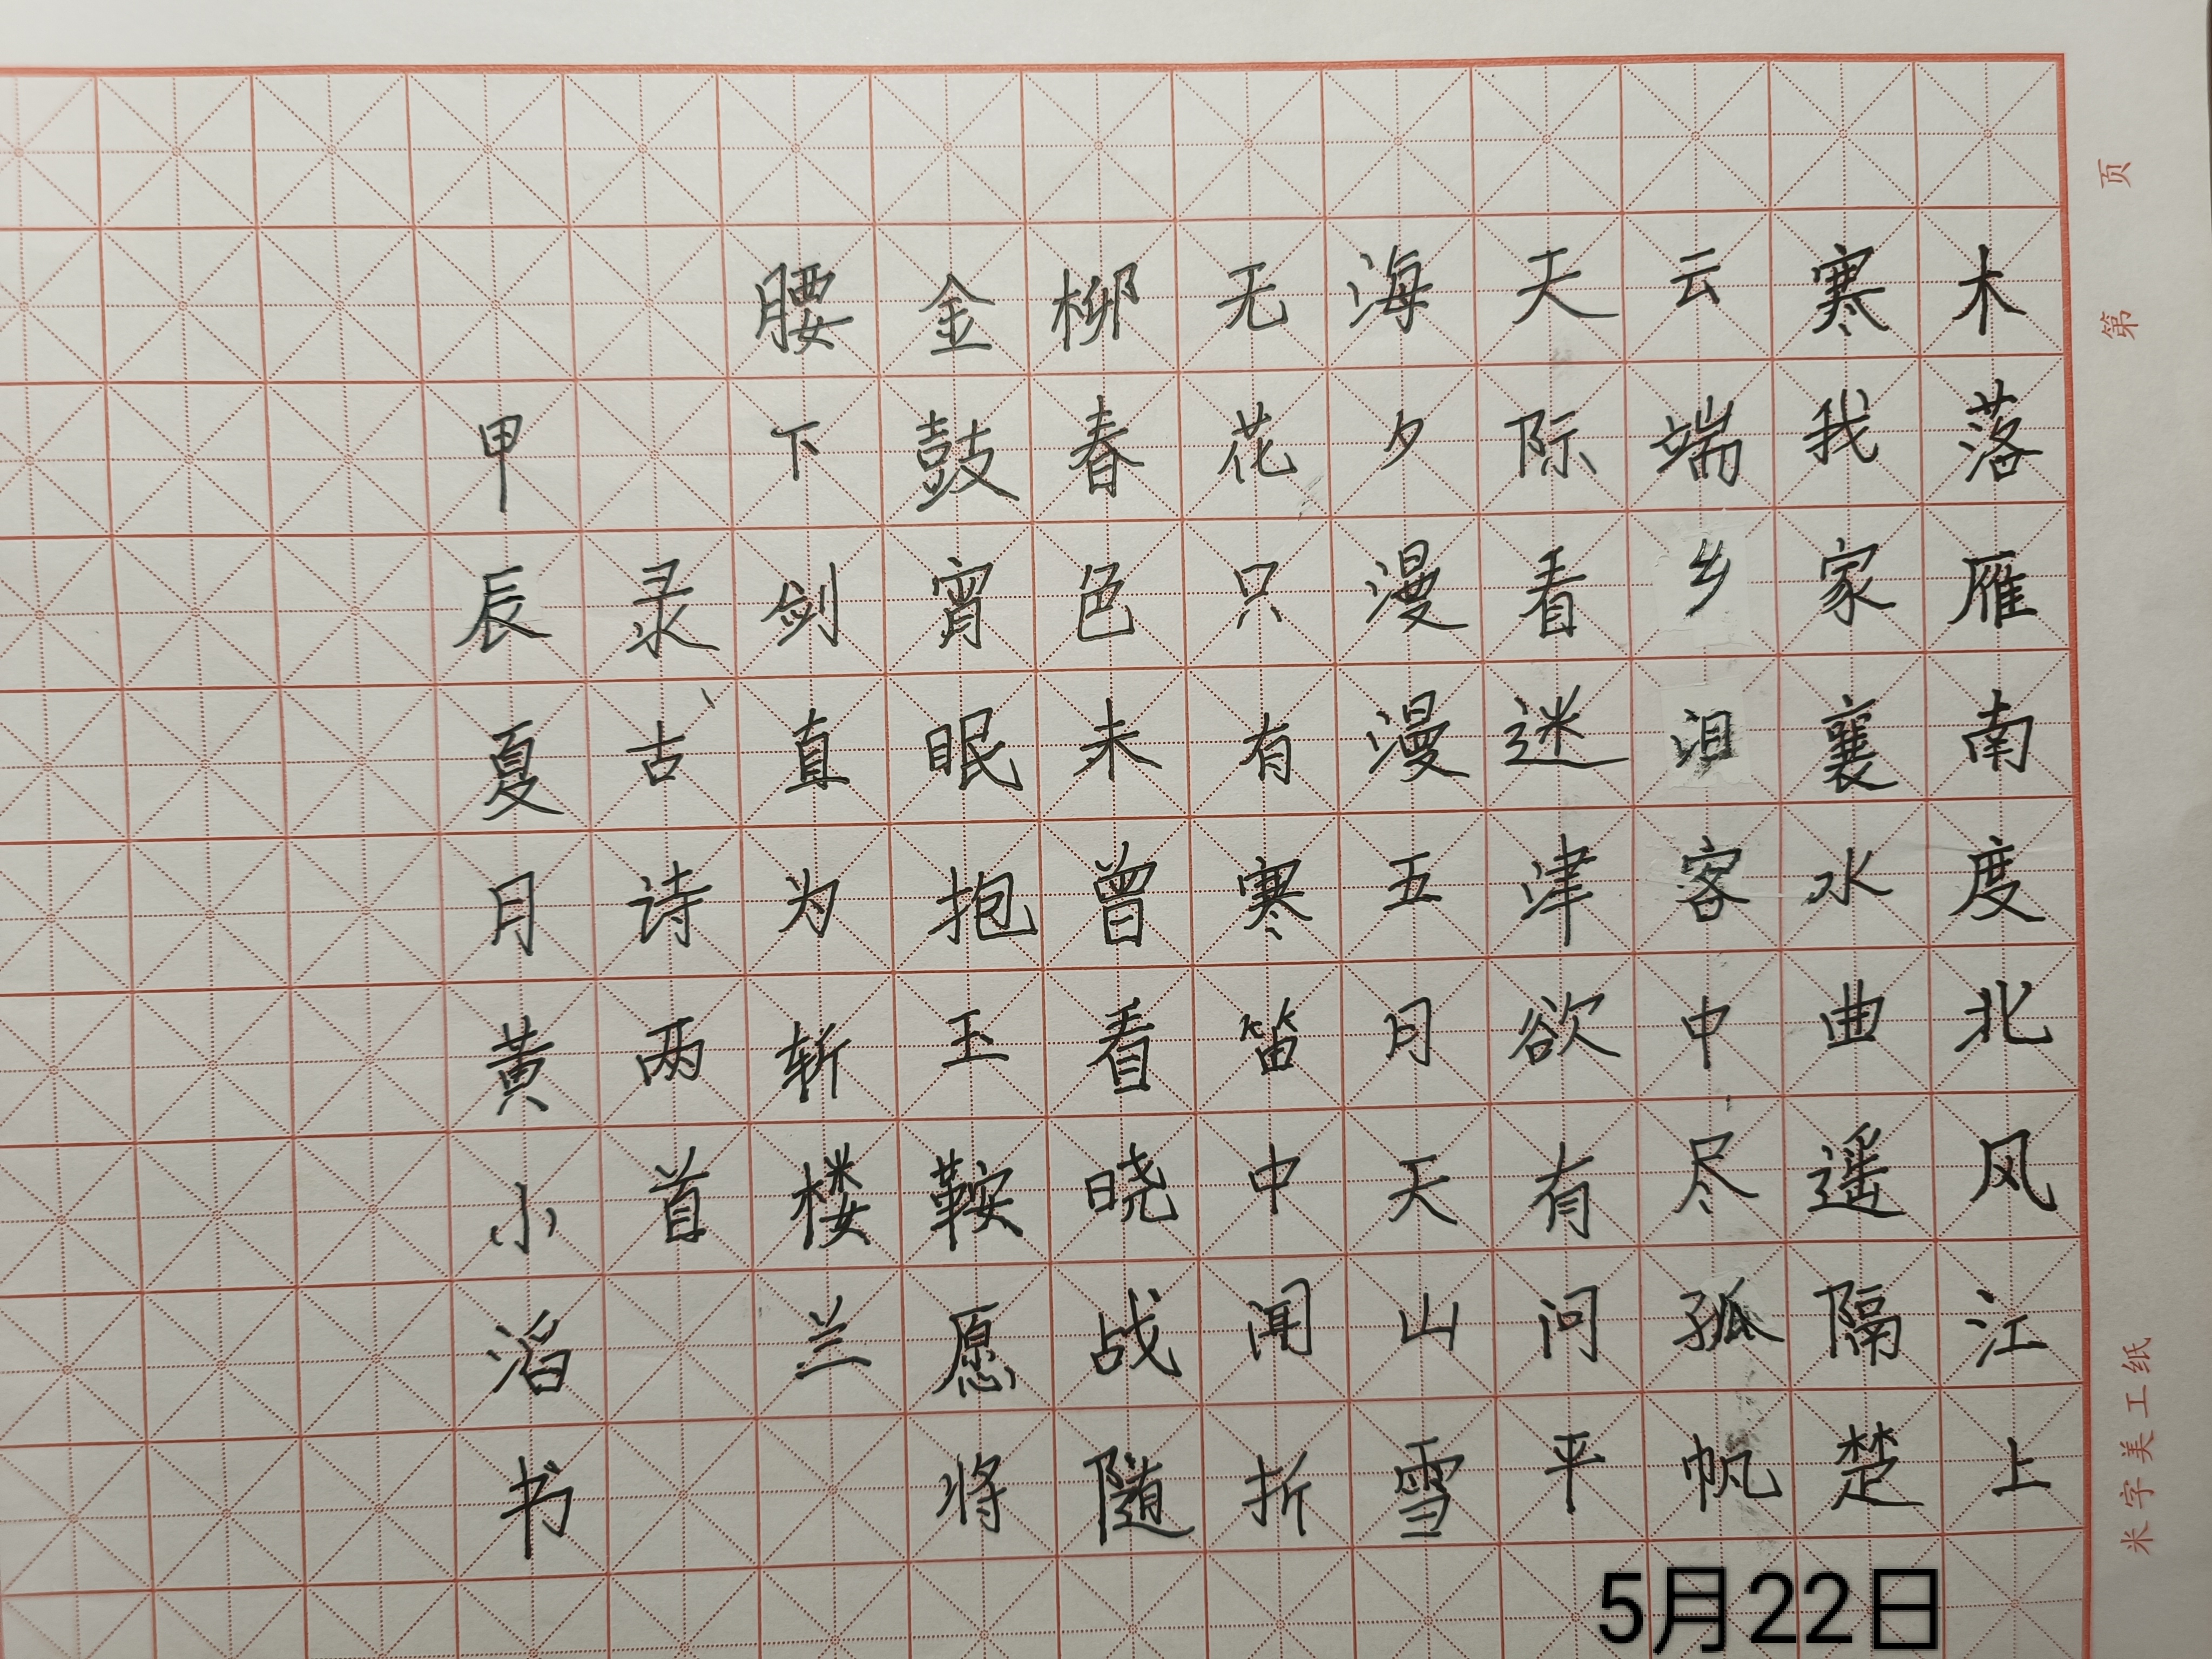 木落雁南度北风江上
寒我家襄水曲遥隔楚
云端乡泪客中尽孤帆
天际看迷津欲有问平
海夕漫漫五月天山雪
无花只有寒笛中闻折
柳春色未曾看晓战随
金鼓宵眠抱玉鞍愿将
腰下剑直为斩楼兰
录古诗两首
甲辰夏月黄小滔书
米字美工纸
第 页
5月22日